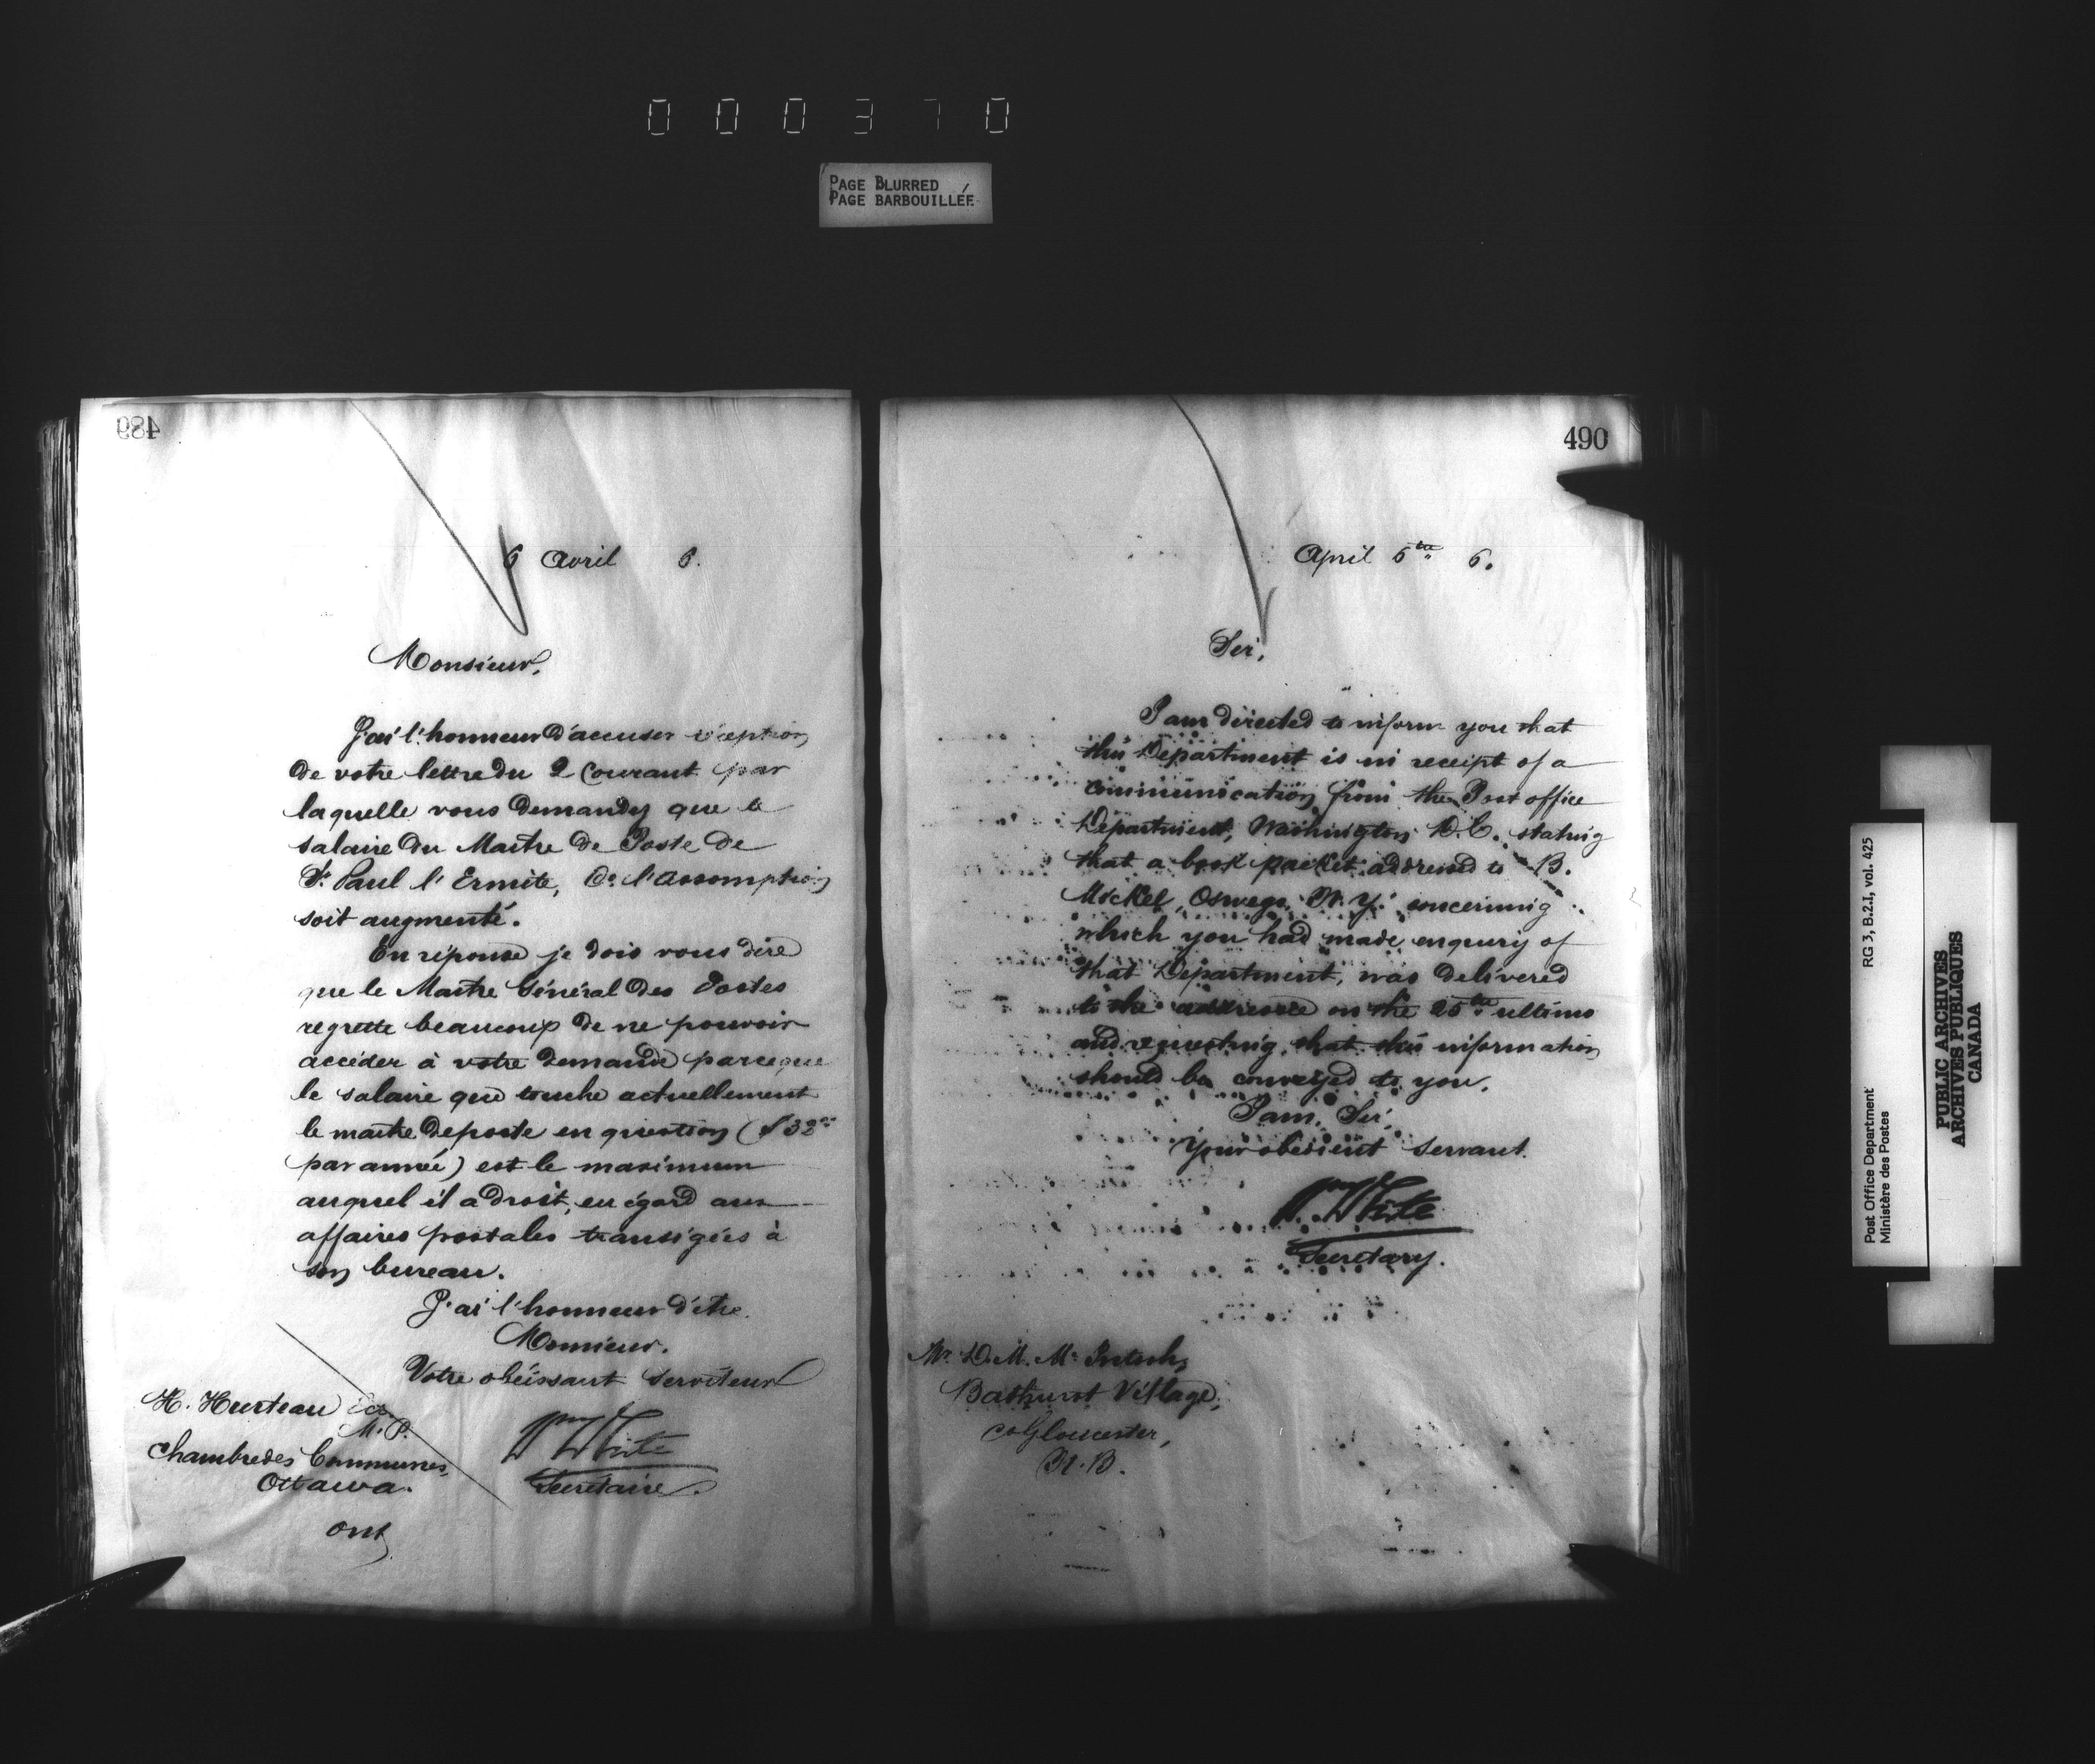 000370
PAGE BLURRED
PAGE BARBOUILLÉE
489
6 Avril 6.
Monsieur,
J'ai l'honneur d'accuser réception
de votre lettre du 2 Courant par
laquelle vous demandez que le
salaire du Maitre de Poste de
St. Paul l'Ermite, Co. l'Assomption
soit augmenté.
En réponse je dois vous dire
que le Maitre Général des Postes
regrette beaucoup de ne pouvoir
accéder à votre demande parceque
le salaire que touche actuellement
le maitre de poste en question ($32
par année) est le maximum
auquel il a droit, eu égard aux
affaires postales transigées à
son bureau.
J'ai l'honneur d'être
Monsieur.
Votre obéissant Serviteur
H. Hurteau
M.P.
Chambre des Communes,
Ottawa.
Ont
Wm White
Secrétaire.
490
April 6th 6.
Sir,
I am directed to inform you that
this Department is in receipt of a
communication from the Post office
Department, Washington D.C. stating
that a book packet addressed to B.
Mickel, Oswego, N.Y. concerning
which you had made enquiry of
that Department, was delivered
to the addressee on the 25th ultimo
and requesting that this information
should be conveyed to you.
I am, Sir,
Your obedient Servant.
Wm White
Secretary.
Mr. D. M.
Bathurst Village,
Co Gloucester,
N.B.
Post Office Department RG 3, B.2.I, vol. 425
Ministère des Postes
PUBLIC ARCHIVES
ARCHIVES PUBLIQUES
CANADA